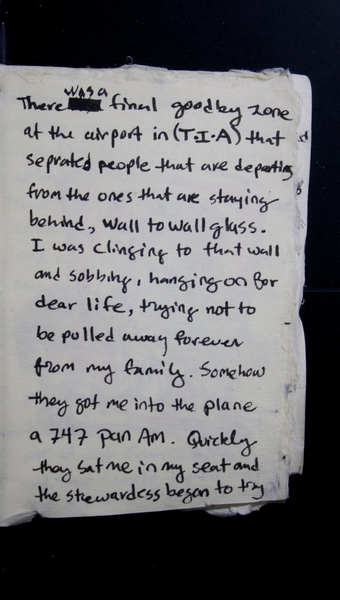 was a
There final goodby zone
at the airport in (T.I.A) that
seprated people that are departing
from the ones that are staying
behind, wall to wall glass.
I was clinging to that wall
and sobbing, hanging on for
dear life, trying not to
be pulled away forever
from my family. Somehow
they got me into the plane
a 747 Pan Am. Quickly
they sat me in my seat and
the stewardess began to try